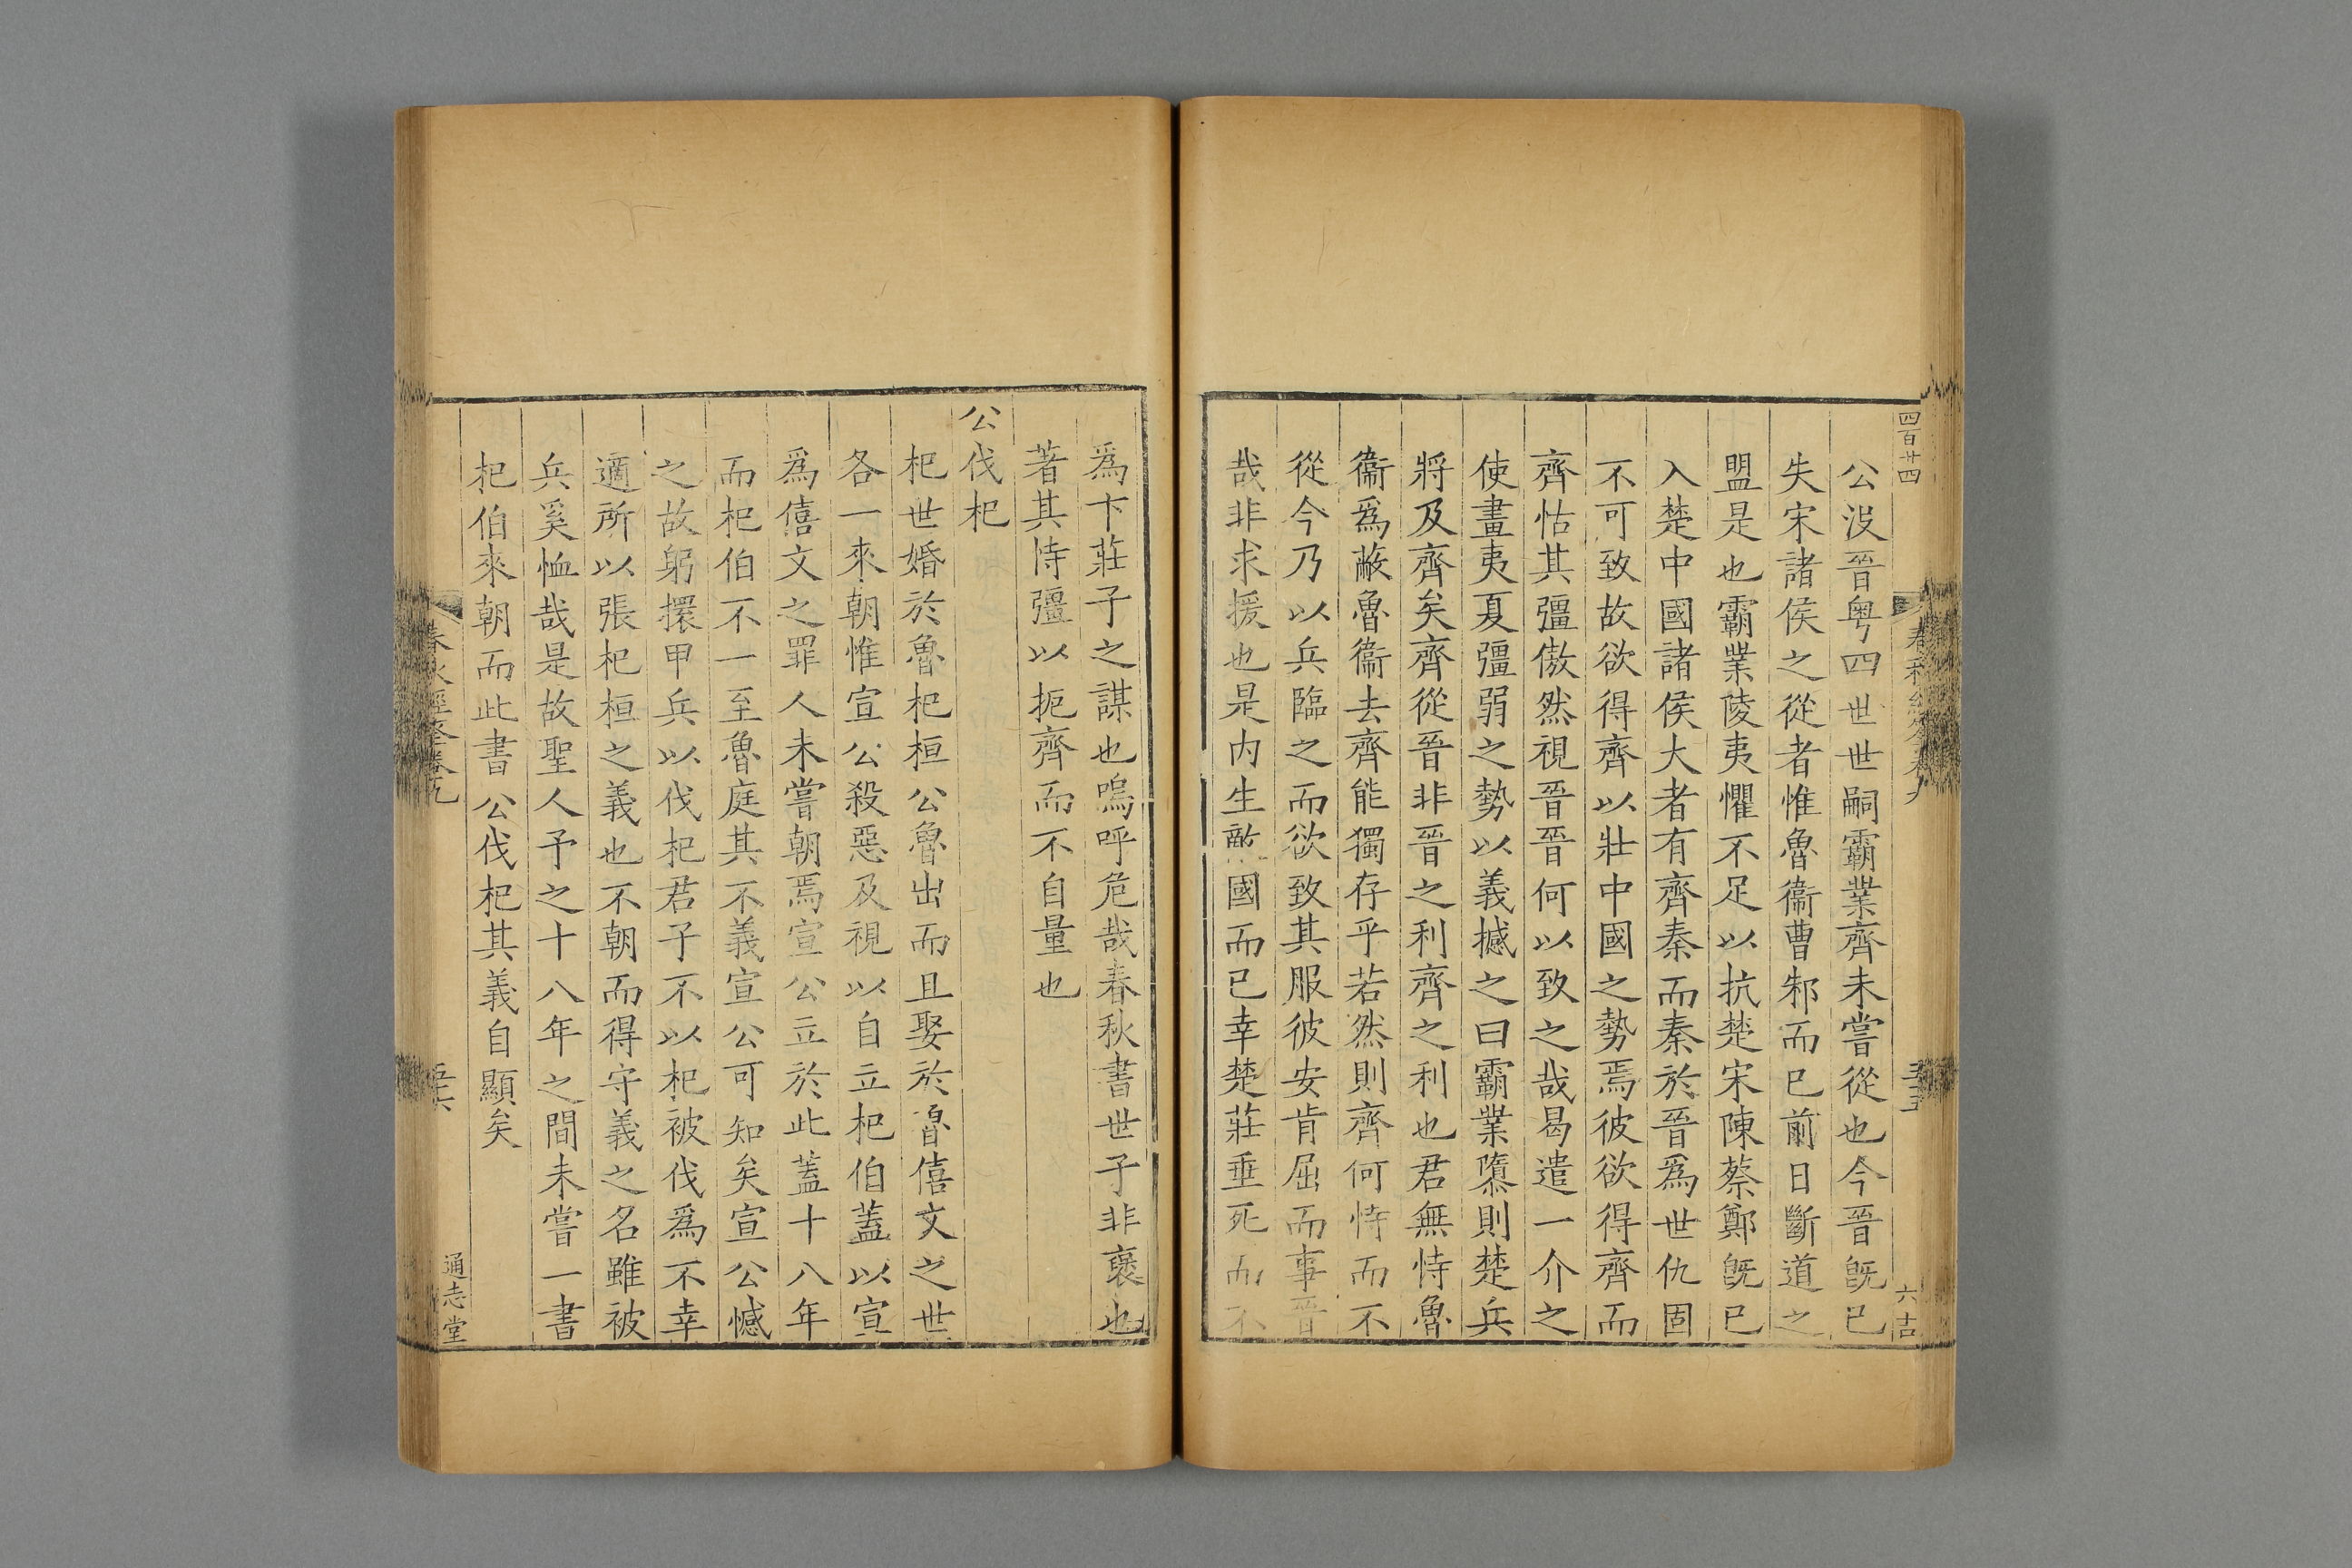 四百廿四
公没晉粤四世世嗣霸業齊未嘗從也今晉旣已
失宋諸侯之從者惟魯衞曹邾而已前日斷道之
盟是也霸業陵夷懼不足以抗楚宋陳蔡鄭旣已
入楚中國諸侯大者有齊秦而秦於晉爲世仇固
不可致故欲得齊以壯中國之勢焉彼欲得齊而
齊怙其彊傲然視晉晉何以致之哉曷遣一介之
使畫夷夏彊弱之勢以義撼之曰霸業隳則楚兵
將及齊矣齊從晉非晉之利齊之利也君無恃魯
衞爲蔽魯衞去齊能獨存乎若然則齊何恃而不
從今乃以兵臨之而欲致其服彼安肯屈而事晉
哉非求援也是内生敵國而已幸楚莊垂死而不
六吉
爲卞莊子之謀也嗚呼危哉春秋書世子非襃也
著其恃彊以扼齊而不自量也
公伐杞
杞世婚於魯杞桓公魯出而且娶於魯僖文之世
各一來朝惟宣公殺惡及視以自立杞伯蓋以宣
爲僖文之罪人未嘗朝焉宣公立於此蓋十八年
而杞伯不一至魯庭其不義宣公可知矣宣公憾
之故躬擐甲兵以伐杞君子不以杞被伐爲不幸
適所以張杞桓之義也不朝而得守義之名雖被
兵奚恤哉是故聖人予之十八年之間未嘗一書
杞伯來朝而此書公伐杞其義自顯矣
通志堂